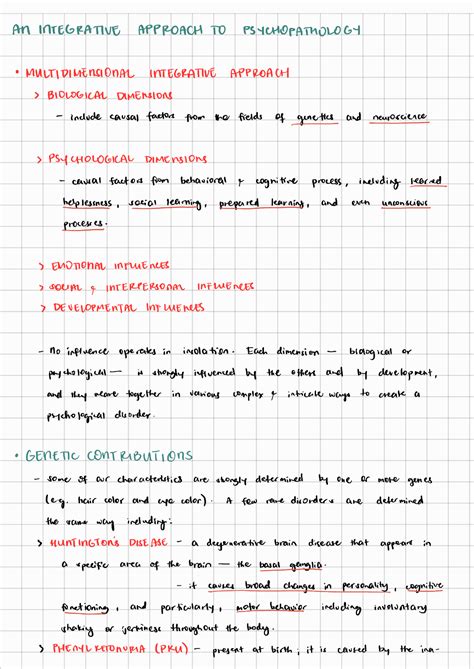 AN INTEGRATIVE APPROACH TO PSYCHOPATHOLOGY
• MULTIDIMENSIONAL INTEGRATIVE APPROACH
> BIOLOGICAL DIMENSIONS
- include causal factors from the fields of genetics and neuroscience
> PSYCHOLOGICAL DIMENSIONS
- causal factors from behavioral & cognitive process, including learned
helplessness, social learning, prepared learning, and even unconscious
processes.
> EMOTIONAL INFLUENCES
> SOCIAL & INTERPERSONAL INFLUENCES
> DEVELOPMENTAL INFLUENCES
- No influence operates in isolation. Each dimension — biological or
psychological — is strongly influenced by the others and by development,
and they weave together in various complex & intricate ways to create a
psychological disorder.
• GENETIC CONTRIBUTIONS
- some of our characteristics are strongly determined by one or more genes
(e.g. hair color and eye color). A few rare disorders are determined
the same way including:
> HUNTINGTON'S DISEASE - a degenerative brain disease that appears in
a specific area of the brain — the basal ganglia.
- it causes broad changes in personality, cognitive
functioning, and particularly, motor behavior including involuntary
shaking or jerkiness throughout the body.
> PHENYLKETONURIA (PKU) - present at birth; it is caused by the ina-